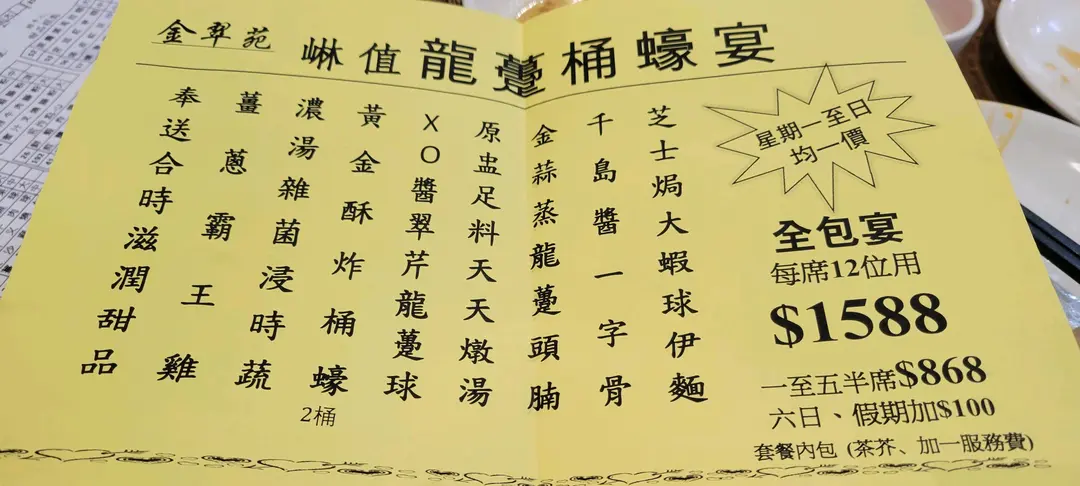 金翠苑
嚇值龍躉桶蠔宴
芝士焗大蝦球伊麵
千島醬一字骨
金蒜蒸龍躉頭腩
原盅足料天天燉湯
XO醬翠芹龍躉球
黃金酥炸桶蠔
2桶
濃湯雜菌浸時蔬
薑蔥霸王雞
奉送合時滋潤甜品
星期一至日
均一價
全包宴
每席12位用
$1588
一至五半席$868
六日、假期加$100
套餐內包 (茶芥、加一服務費)